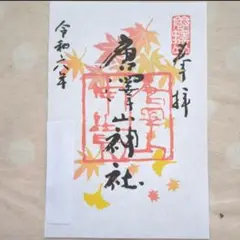 奉拝
唐澤山神社
令和六年